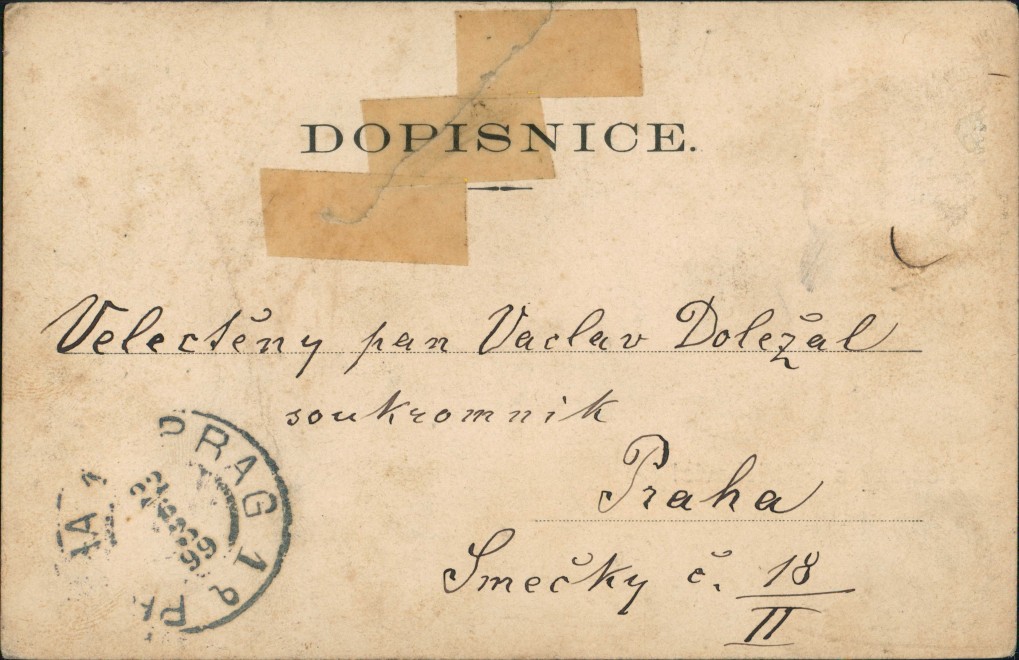 DOPISNICE.
Velectěny pan Vaclav Doležal
soukromnik
Praha
Smečky č. 18
II
PRAG 1
22
99